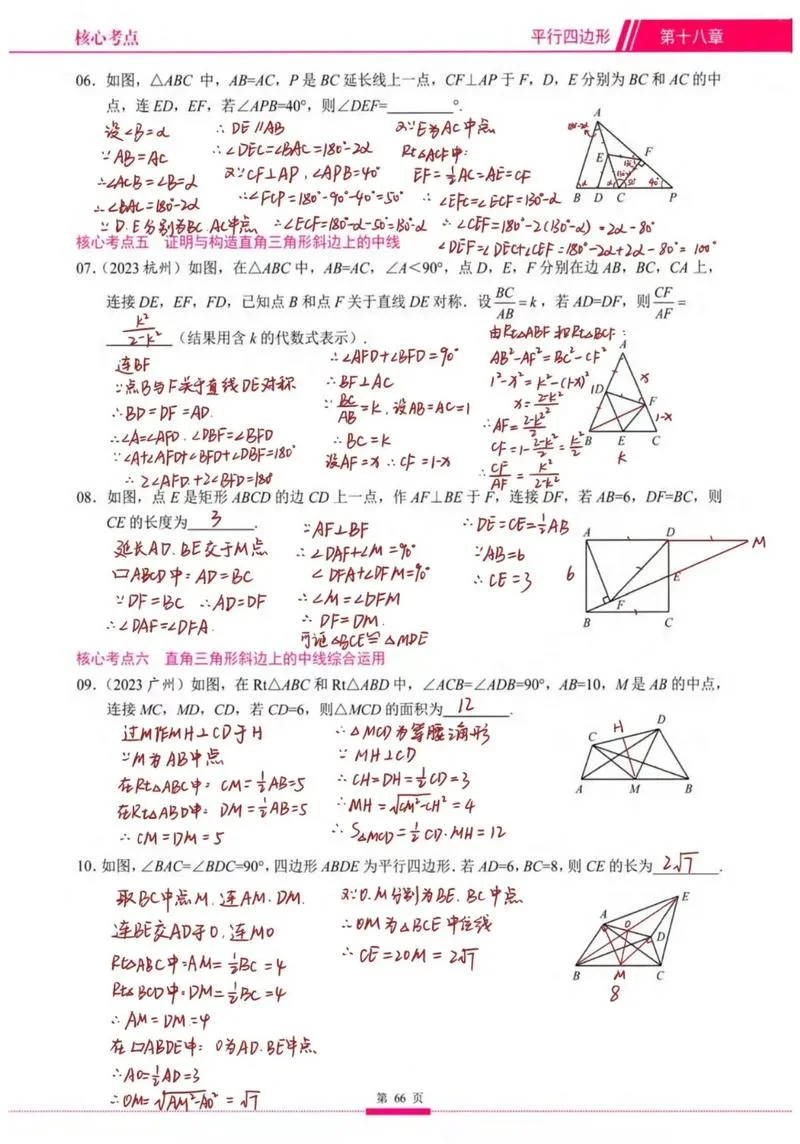 核心考点
平行四边形 // 第十八章
06. 如图，△ABC 中，AB=AC，P 是 BC 延长线上一点，CF⊥AP 于 F，D，E 分别为 BC 和 AC 的中
点，连 ED，EF，若∠APB=40°，则∠DEF=________°.
设∠B=α
∵AB=AC
∴∠ACB=∠B=α
∴∠BAC=180°-2α
∵D.E分别为BC.AC中点
∴DE∥AB
∴∠DEC=∠BAC=180°-2α
又∵CF⊥AP，∠APB=40°
∴∠FCP=180°-90°-40°=50°
∴∠ECF=180°-α-50°=130°-α
又∵E为AC中点
Rt△ACF中:
EF=½AC=AE=CF
∴∠EFC=∠ECF=130°-α
∴∠CEF=180°-2(130°-α)=2α-80°
∠DEF=∠DEC+∠CEF=180°-2α+2α-80°=100°
A
E
F
B D C P
α
50°
40°
核心考点五 证明与构造直角三角形斜边上的中线
07.（2023 杭州）如图，在△ABC 中，AB=AC，∠A<90°，点 D，E，F 分别在边 AB，BC，CA 上，
连接 DE，EF，FD，已知点 B 和点 F 关于直线 DE 对称．设 BC/AB=k，若 AD=DF，则 CF/AF=
k²/2-k² （结果用含 k 的代数式表示）.
连BF
∵点B与F关于直线DE对称
∴BD=DF=AD.
∴∠A=∠AFD，∠DBF=∠BFD
∵∠A+∠AFD+∠BFD+∠DBF=180°
∴2∠AFD+2∠BFD=180
∴∠AFD+∠BFD=90°
∴BF⊥AC
∵BC/AB=k，设AB=AC=1
∴BC=k
设AF=x ∴CF=1-x
由Rt△ABF和Rt△BCF:
AB²-AF²=BC²-CF²
1²-x²=k²-(1-x)²
x=2-k²/2
∴AF=2-k²/2
CF=1-2-k²/2=k²/2
∴CF/AF=k²/2-k²
A
1 D
x
F
1-x
B E C
k
08. 如图，点 E 是矩形 ABCD 的边 CD 上一点，作 AF⊥BE 于 F，连接 DF，若 AB=6，DF=BC，则
CE 的长度为 3 .
延长AD.BE交于M点
□ABCD中: AD=BC
∵DF=BC ∴AD=DF
∴∠DAF=∠DFA.
∵AF⊥BF
∴∠DAF+∠M=90°
∠DFA+∠DFM=90°
∴∠M=∠DFM
∴DF=DM.
可证△BCE≌△MDE
∴DE=CE=½AB
∵AB=6
∴CE=3
A D M
6
E
F
B C
核心考点六 直角三角形斜边上的中线综合运用
09.（2023 广州）如图，在 Rt△ABC 和 Rt△ABD 中，∠ACB=∠ADB=90°，AB=10，M 是 AB 的中点，
连接 MC，MD，CD，若 CD=6，则△MCD 的面积为 12 .
过M作MH⊥CD于H
∵M为AB中点
在Rt△ABC中: CM=½AB=5
在Rt△ABD中: DM=½AB=5
∴CM=DM=5
∴△MCD为等腰三角形
∵MH⊥CD
∴CH=DH=½CD=3
∴MH=√CM²-CH²=4
∴S△MCD=½CD·MH=12
D
H
C
A M B
10. 如图，∠BAC=∠BDC=90°，四边形 ABDE 为平行四边形．若 AD=6，BC=8，则 CE 的长为 2√7 .
取BC中点M.连AM.DM.
连BE交AD于O.连MO
Rt△ABC中:AM=½BC=4
Rt△BCD中:DM=½BC=4
∴AM=DM=4
在□ABDE中: O为AD.BE中点
∴AO=½AD=3
∴OM=√AM²-AO²=√7
又∵O.M分别为BE.BC中点
∴OM为△BCE中位线
∴CE=2OM=2√7
E
A
O
D
B M C
8
第 66 页